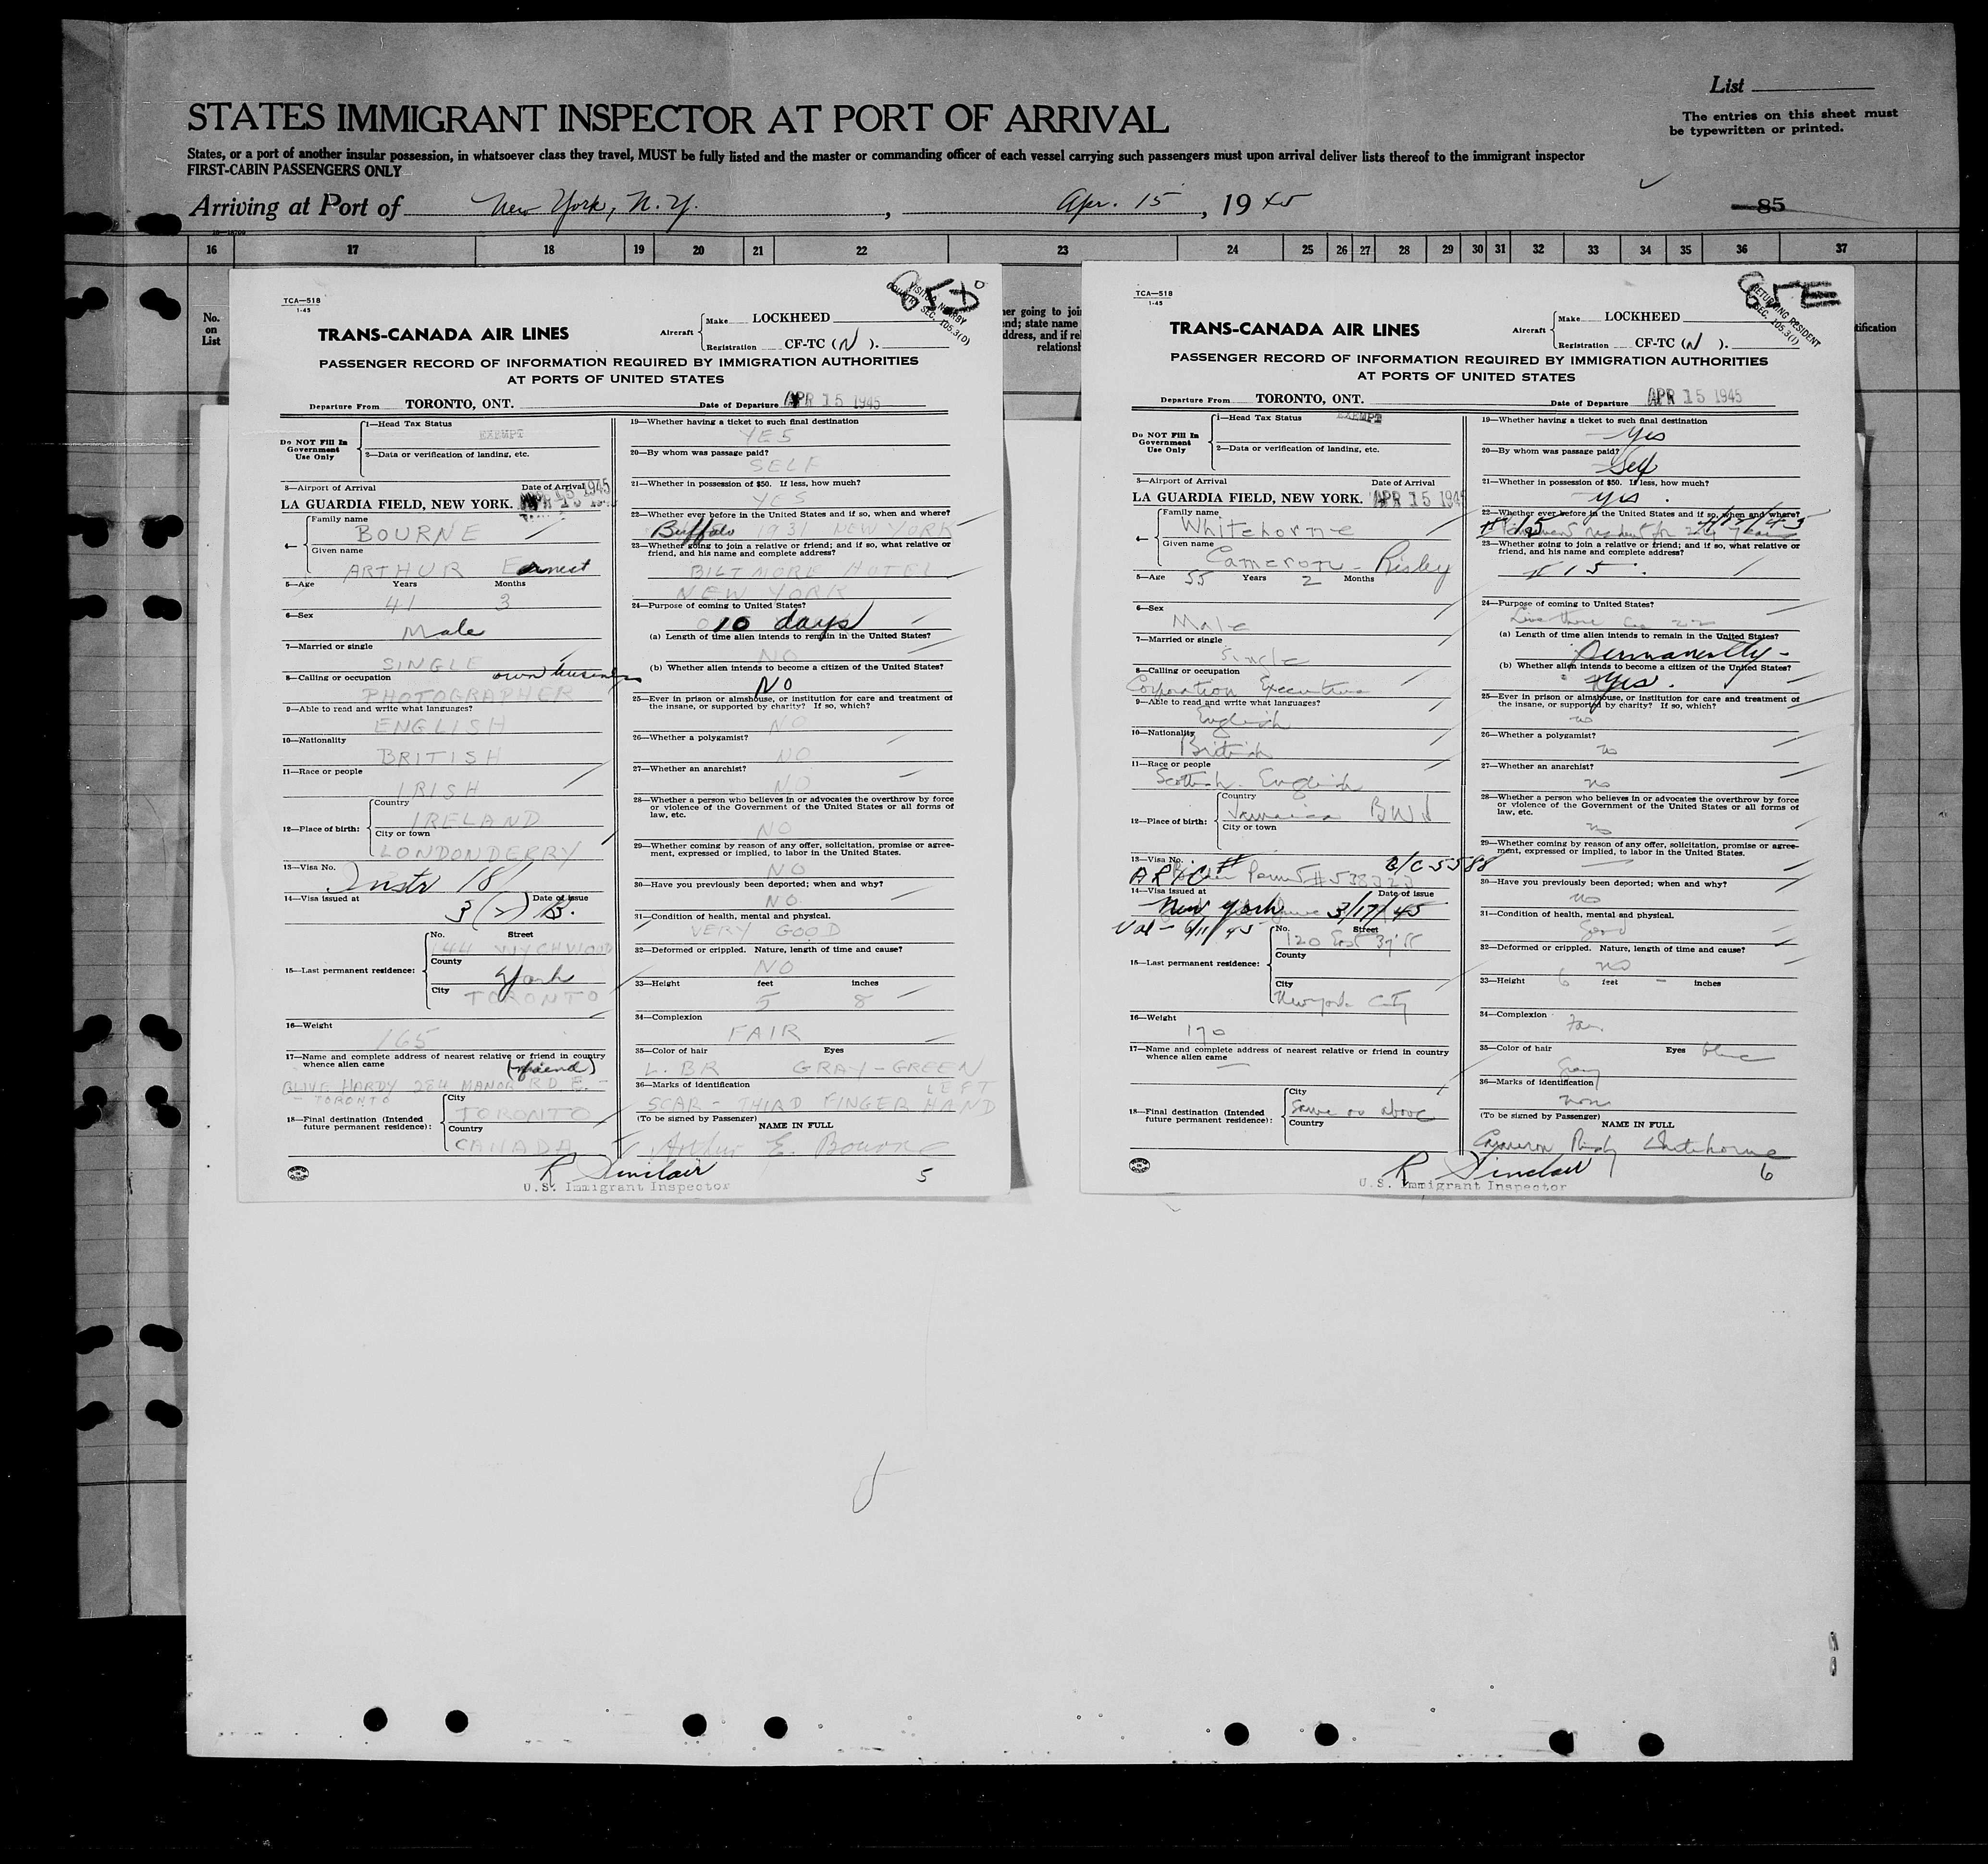 List
STATES IMMIGRANT INSPECTOR AT PORT OF ARRIVAL
The entries on this sheet must
be typewritten or printed.
States, or a port of another insular possession, in whatsoever class they travel, MUST be fully listed and the master or commanding officer of each vessel carrying such passengers must upon arrival deliver lists thereof to the immigrant inspector
FIRST-CABIN PASSENGERS ONLY
Arriving at Port of New York, N.Y., Apr. 15, 1945
85
16 17 18 19 20 21 22 23 24 25 26 27 28 29 30 31 32 33 34 35 36 37
No.
on
List
TCA—518
1-45
VISITOR NEARBY
COUNTRY SEC. 105.3(D)
TRANS-CANADA AIR LINES
Aircraft Make LOCKHEED
Registration CF-TC (N).
PASSENGER RECORD OF INFORMATION REQUIRED BY IMMIGRATION AUTHORITIES
AT PORTS OF UNITED STATES
Departure From TORONTO, ONT. Date of Departure APR 15 1945
Do NOT Fill In
Government
Use Only
1—Head Tax Status
EXEMPT
2—Data or verification of landing, etc.
3—Airport of Arrival Date of Arrival
LA GUARDIA FIELD, NEW YORK. APR 15 1945
4— Family name
BOURNE
Given name
ARTHUR Earnest
5—Age Years Months
41 3
6—Sex
Male
7—Married or single
SINGLE
8—Calling or occupation own business
PHOTOGRAPHER
9—Able to read and write what languages?
ENGLISH
10—Nationality
BRITISH
11—Race or people
IRISH
12—Place of birth: Country
IRELAND
City or town
LONDONDERRY
13—Visa No.
Instr 18
14—Visa issued at Date of issue
3 (2) B.
15—Last permanent residence: No. Street
144 WYCHWOOD
County
York
City
TORONTO
16—Weight
165
17—Name and complete address of nearest relative or friend in country
whence alien came
(friend)
OLIVE HARDY 284 MANOR RD E. -
- TORONTO
18—Final destination (Intended
future permanent residence): City
TORONTO
Country
CANADA
19—Whether having a ticket to such final destination
YES
20—By whom was passage paid?
SELF
21—Whether in possession of $50. If less, how much?
YES
22—Whether ever before in the United States and if so, when and where?
Buffalo NEW YORK
23—Whether going to join a relative or friend; and if so, what relative or
friend, and his name and complete address?
BILTMORE HOTEL
NEW YORK
24—Purpose of coming to United States?
10 days
(a) Length of time alien intends to remain in the United States?
NO
(b) Whether alien intends to become a citizen of the United States?
NO
25—Ever in prison or almshouse, or institution for care and treatment of
the insane, or supported by charity? If so, which?
NO
26—Whether a polygamist?
NO
27—Whether an anarchist?
NO
28—Whether a person who believes in or advocates the overthrow by force
or violence of the Government of the United States or all forms of
law, etc.
NO
29—Whether coming by reason of any offer, solicitation, promise or agree-
ment, expressed or implied, to labor in the United States.
NO
30—Have you previously been deported; when and why?
NO
31—Condition of health, mental and physical.
VERY GOOD
32—Deformed or crippled. Nature, length of time and cause?
NO
33—Height feet inches
5 8
34—Complexion
FAIR
35—Color of hair Eyes
L. BR GRAY-GREEN
36—Marks of identification LEFT
SCAR - THIRD FINGER HAND
(To be signed by Passenger)
NAME IN FULL
Arthur E. Bourne
R Sinclair
U.S. Immigrant Inspector
5
TCA—518
1-45
RETURNING RESIDENT
SEC. 105.3(1)
TRANS-CANADA AIR LINES
Aircraft Make LOCKHEED
Registration CF-TC (N).
PASSENGER RECORD OF INFORMATION REQUIRED BY IMMIGRATION AUTHORITIES
AT PORTS OF UNITED STATES
Departure From TORONTO, ONT. Date of Departure APR 15 1945
Do NOT Fill In
Government
Use Only
1—Head Tax Status
EXEMPT
2—Data or verification of landing, etc.
3—Airport of Arrival Date of Arrival
LA GUARDIA FIELD, NEW YORK. APR 15 1945
4— Family name
Whitehorne
Given name
Cameron - Risley
5—Age 55 Years 2 Months
6—Sex
Male
7—Married or single
Single
8—Calling or occupation
Corporation Executive
9—Able to read and write what languages?
English
10—Nationality
British
11—Race or people
Scottish English
12—Place of birth: Country
Jamaica BWI
City or town
13—Visa No.
14—Visa issued at Date of issue
New York 3/17/45
15—Last permanent residence: No. Street
120 East 37 St
County
City
New York City
16—Weight
170
17—Name and complete address of nearest relative or friend in country
whence alien came
18—Final destination (Intended
future permanent residence): City
Same as above
Country
19—Whether having a ticket to such final destination
Yes
20—By whom was passage paid?
Self
21—Whether in possession of $50. If less, how much?
yes.
22—Whether ever before in the United States and if so, when and where?
23—Whether going to join a relative or friend; and if so, what relative or
friend, and his name and complete address?
# 15.
24—Purpose of coming to United States?
Live there
(a) Length of time alien intends to remain in the United States?
Permanently -
(b) Whether alien intends to become a citizen of the United States?
Yes.
25—Ever in prison or almshouse, or institution for care and treatment of
the insane, or supported by charity? If so, which?
no
26—Whether a polygamist?
no
27—Whether an anarchist?
no
28—Whether a person who believes in or advocates the overthrow by force
or violence of the Government of the United States or all forms of
law, etc.
no
29—Whether coming by reason of any offer, solicitation, promise or agree-
ment, expressed or implied, to labor in the United States.
30—Have you previously been deported; when and why?
no
31—Condition of health, mental and physical.
Good
32—Deformed or crippled. Nature, length of time and cause?
no
33—Height 6 feet - inches
34—Complexion
Fair
35—Color of hair Eyes blue
Gray
36—Marks of identification
none
(To be signed by Passenger)
NAME IN FULL
Cameron Risley Whitehorne
R Sinclair
U.S. Immigrant Inspector
6